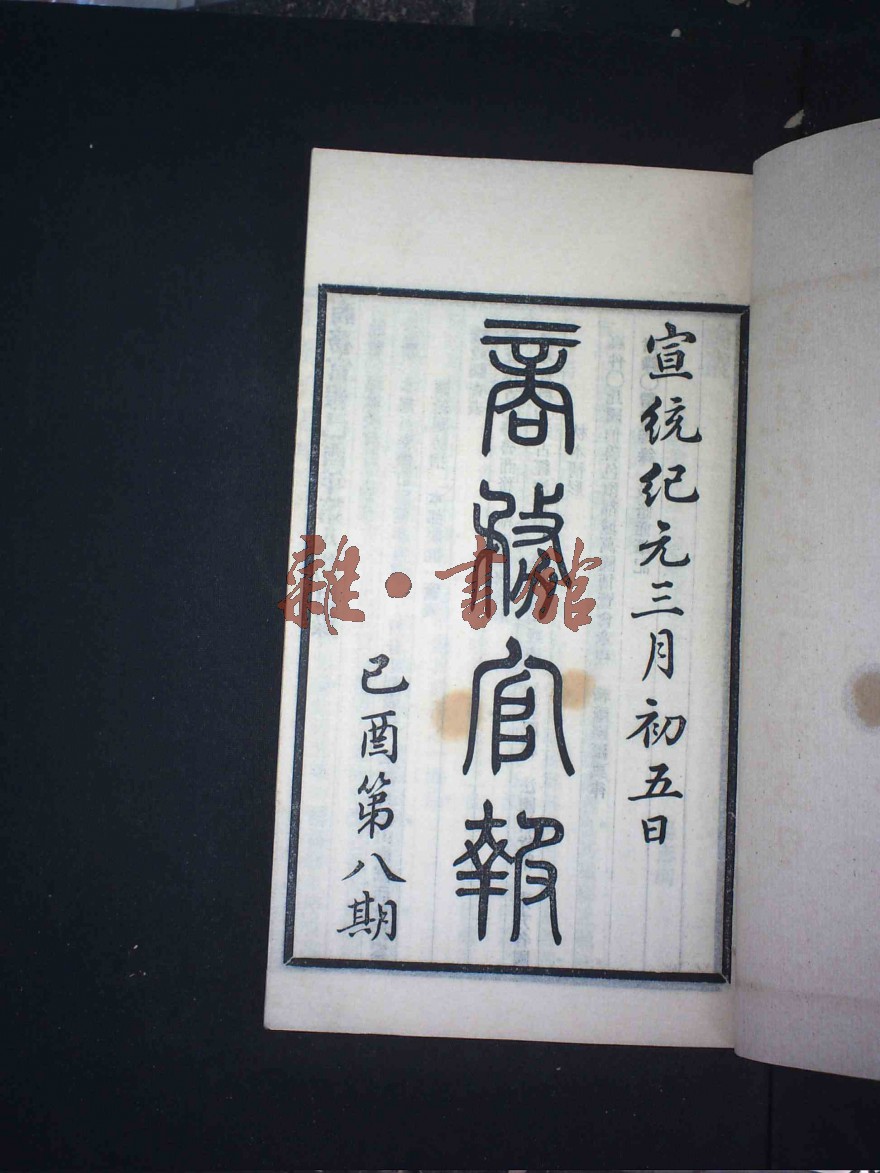 宣统纪元三月初五日
商務官報
己酉第八期
雜·書館